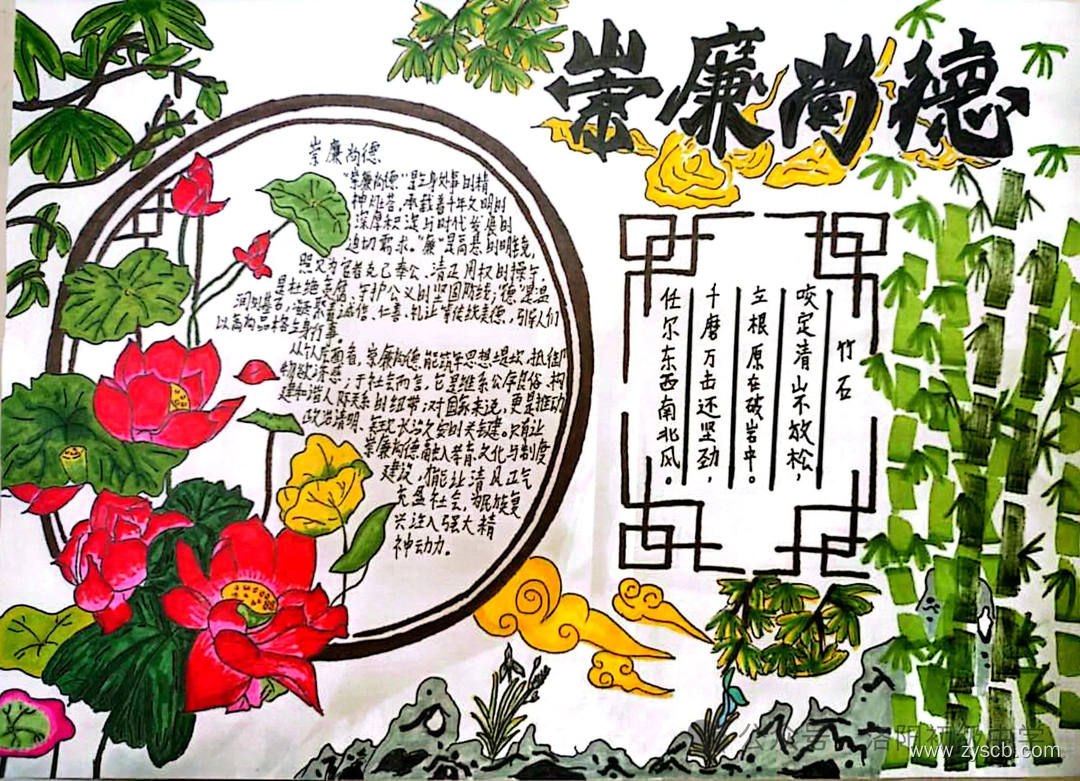 崇廉尚德
崇廉尚德
“崇廉尚德”是立身处事的精
神灯塔，承载着千年文明的
深厚积淀与时代发展的
迫切需求。“廉”是高悬的明镜，
照见为官者克己奉公、清正用权的操守，
是杜绝贪腐、守护公义的坚固防线；“德”是温
润的基石，凝聚着诚信、仁善、礼让等传统美德，引导人们
以高尚品格立身行事。
从个人层面看，崇廉尚德能筑牢思想堤坝，抵御
物欲诱惑；于社会而言，它是维系公序良俗、构
建和谐人际关系的纽带；对国家来说，更是推动
政治清明、长治久安的关键。只有让
崇廉尚德融入教育、文化与制度
建设，才能让清风正气
充盈社会，为民族复
兴注入强大精
神动力。
竹石
咬定清山不放松，
立根原在破岩中。
千磨万击还坚劲，
任尔东西南北风。
公众号
洛阳
www.zyscb.com